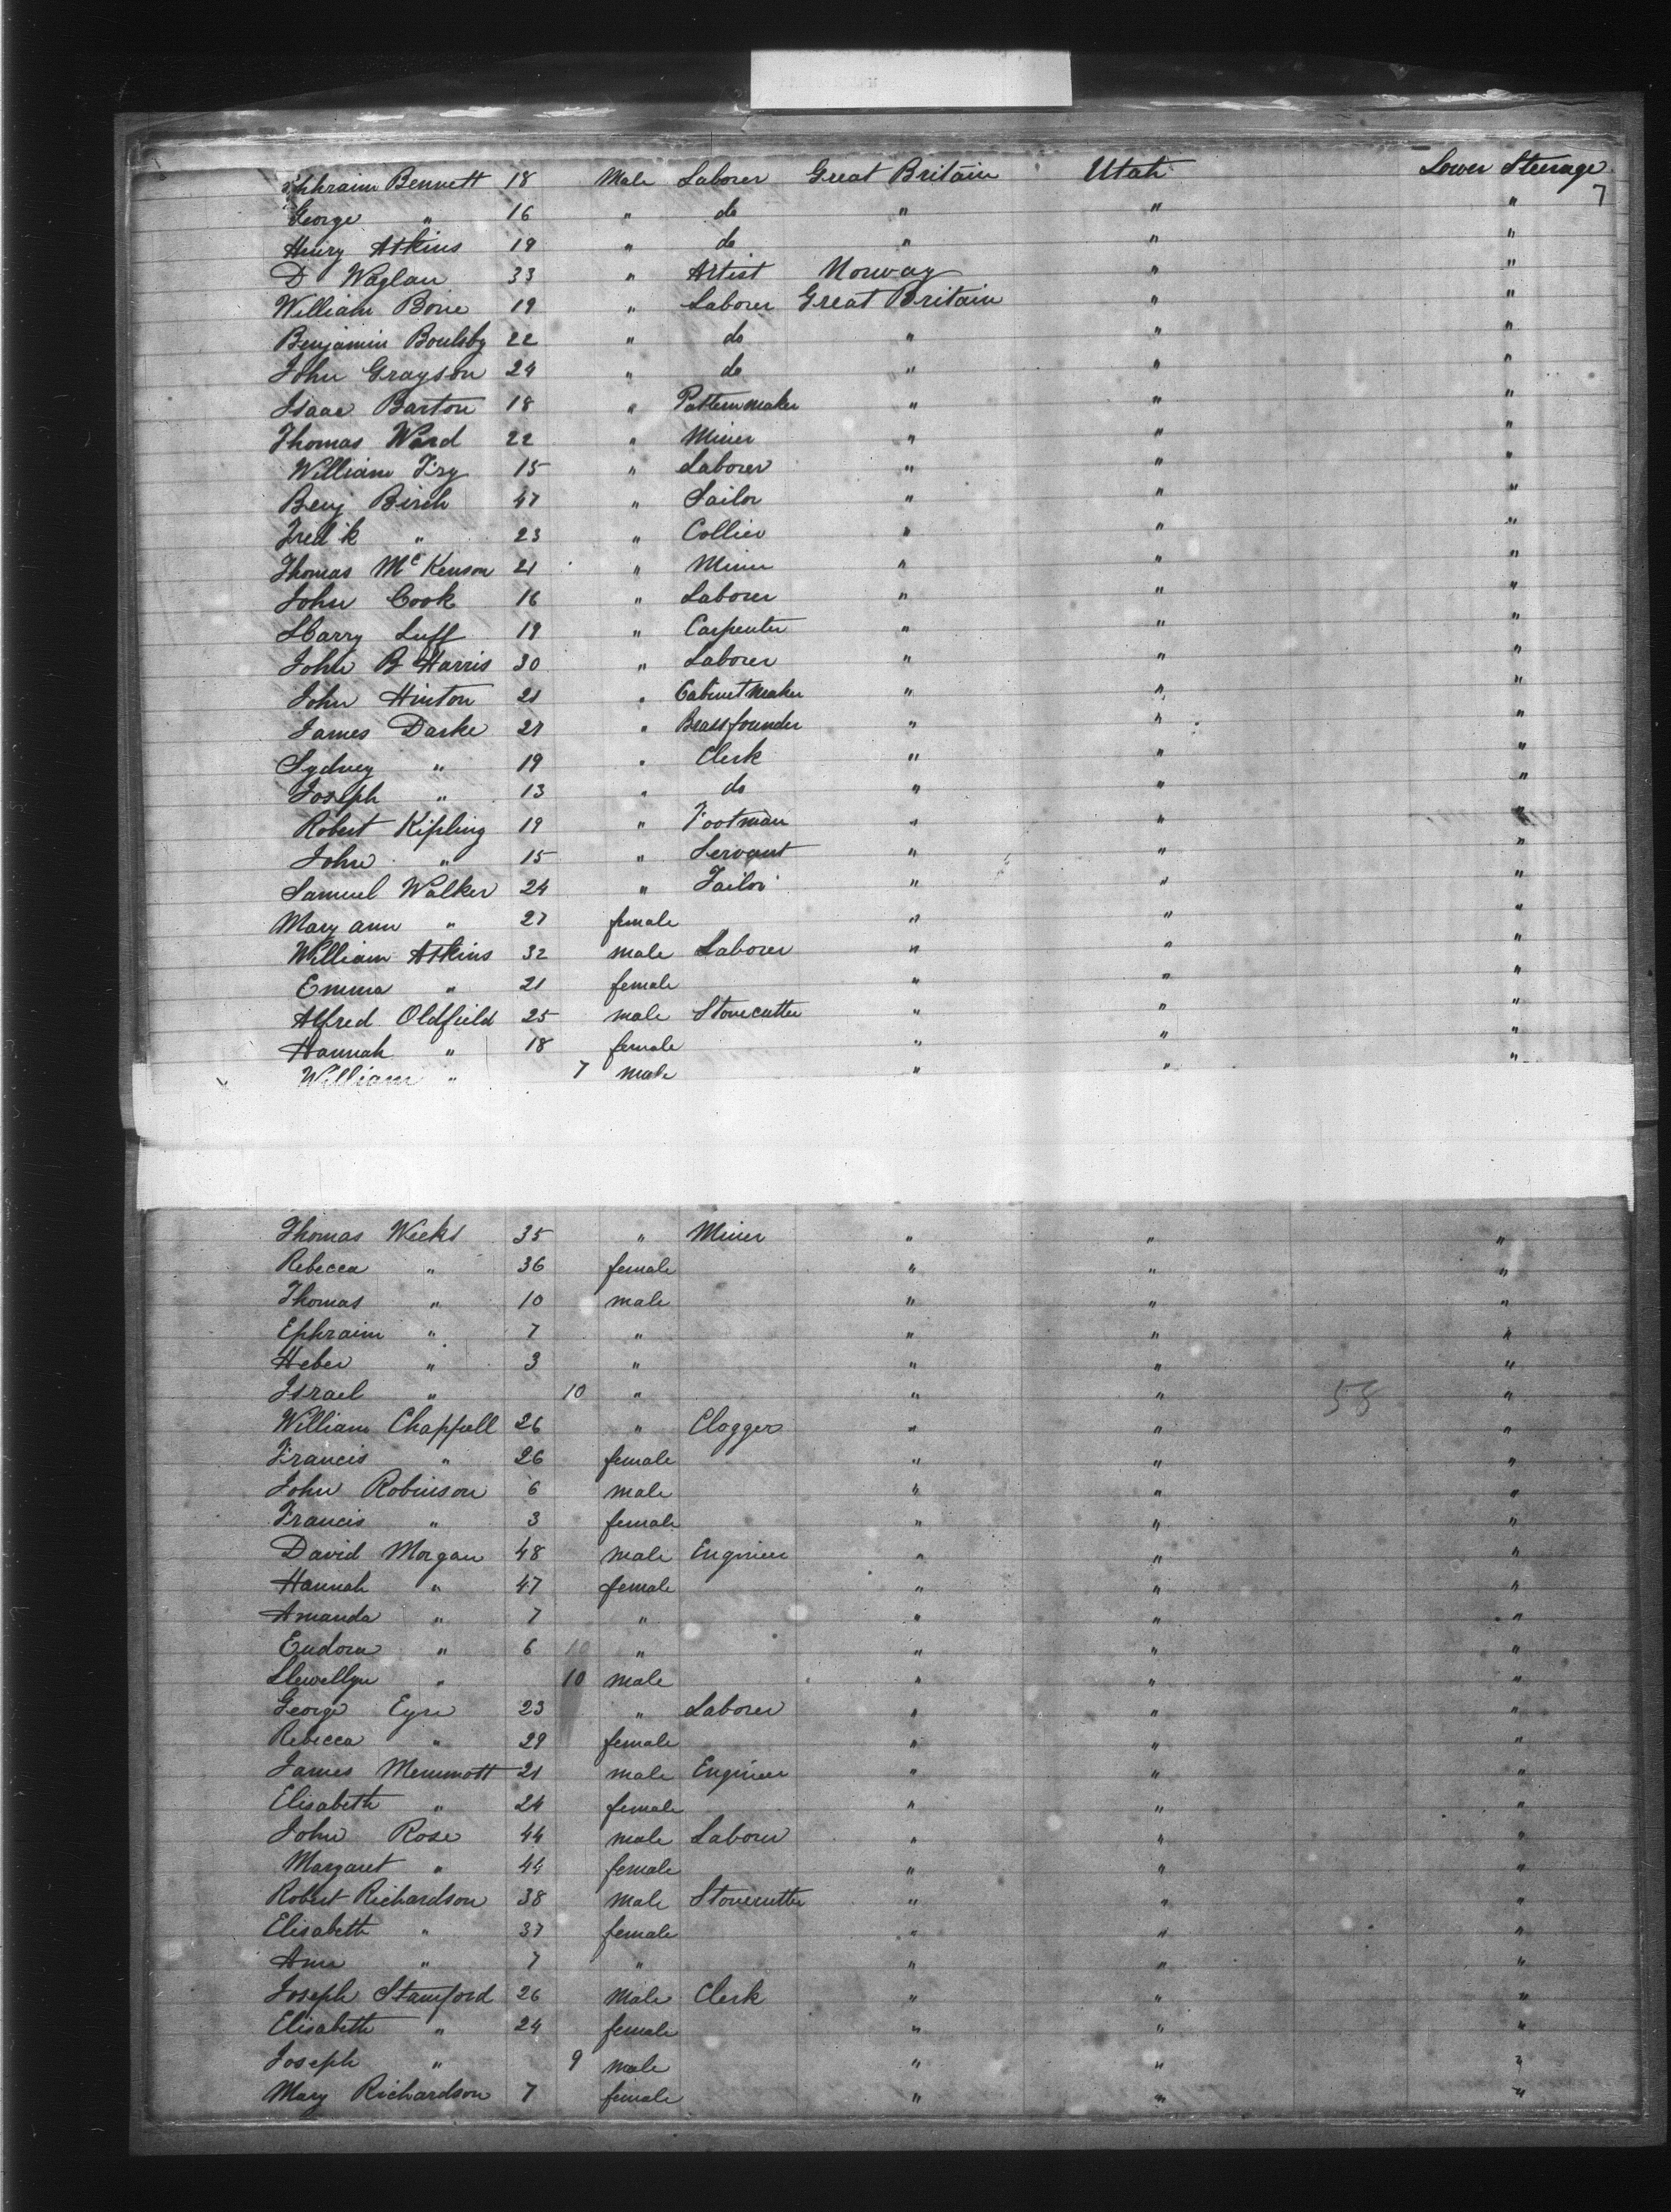 Ephraim Bennett 18 Male Laborer Great Britain Utah Lower Steerage
7
George " 16 " do " " "
Henry Atkins 19 " do " " "
D Waglan 33 " Artist Norway " "
William Bone 19 " Laborer Great Britain " "
Benjamin Boulsby 22 " do " " "
John Grayson 24 " do " " "
Isaac Barton 18 " Patternmaker " " "
Thomas Ward 22 " Miner " " "
William Fry 15 " Laborer " " "
Benj Birch 47 " Sailor " " "
Fred'k " 23 " Collier " " "
Thomas McKenson 21 " Miner " " "
John Cook 16 " Laborer " " "
Harry Luff 19 " Carpenter " " "
John B Harris 30 " Laborer " " "
John Hinton 21 " Cabinetmaker " " "
James Darke 27 " Brassfounder " " "
Sydney " 19 " Clerk " " "
Joseph " 13 " do " " "
Robert Kipling 19 " Footman " " "
John " 15 " Servant " " "
Samuel Walker 24 " Tailor " " "
Mary ann " 27 female " " "
William Atkins 32 male Laborer " " "
Emma " 21 female " " "
Alfred Oldfield 25 male Stonecutter " " "
Hannah " 18 female " " "
William " 7 male " " "
Thomas Weeks 35 " Miner " " "
Rebecca " 36 female " " "
Thomas " 10 male " " "
Ephraim " 7 " " " "
Heber " 3 " " " "
Israel " 10 " " " 58 "
William Chappell 26 " Clogger " " "
Francis " 26 female " " "
John Robinson 6 male " " "
Francis " 3 female " " "
David Morgan 48 male Engineer " " "
Hannah " 47 female " " "
Amanda " 7 " " " "
Eudora " 6 10 " " " "
Llewellyn " 10 male " " "
George Eyre 23 " Laborer " " "
Rebecca " 29 female " " "
James Memmott 21 male Engineer " " "
Elisabeth " 24 female " " "
John Rose 44 male Laborer " " "
Margaret " 44 female " " "
Robert Richardson 38 male Stonecutter " " "
Elisabeth " 37 female " " "
Ann " 7 " " " "
Joseph Stamford 26 Male Clerk " " "
Elisabeth " 24 female " " "
Joseph " 9 male " " "
Mary Richardson 7 female " " "